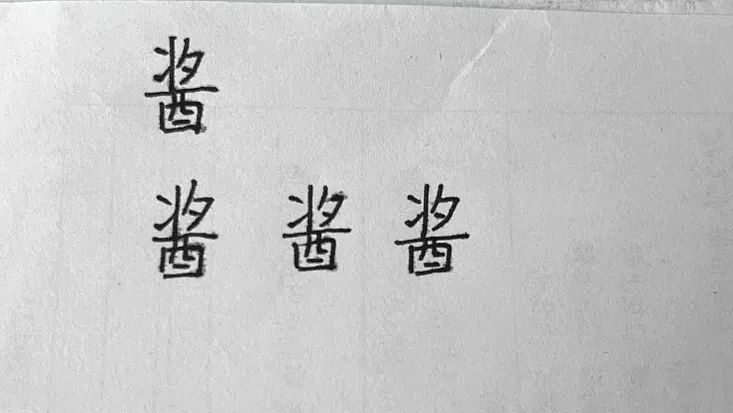 酱
酱 酱 酱